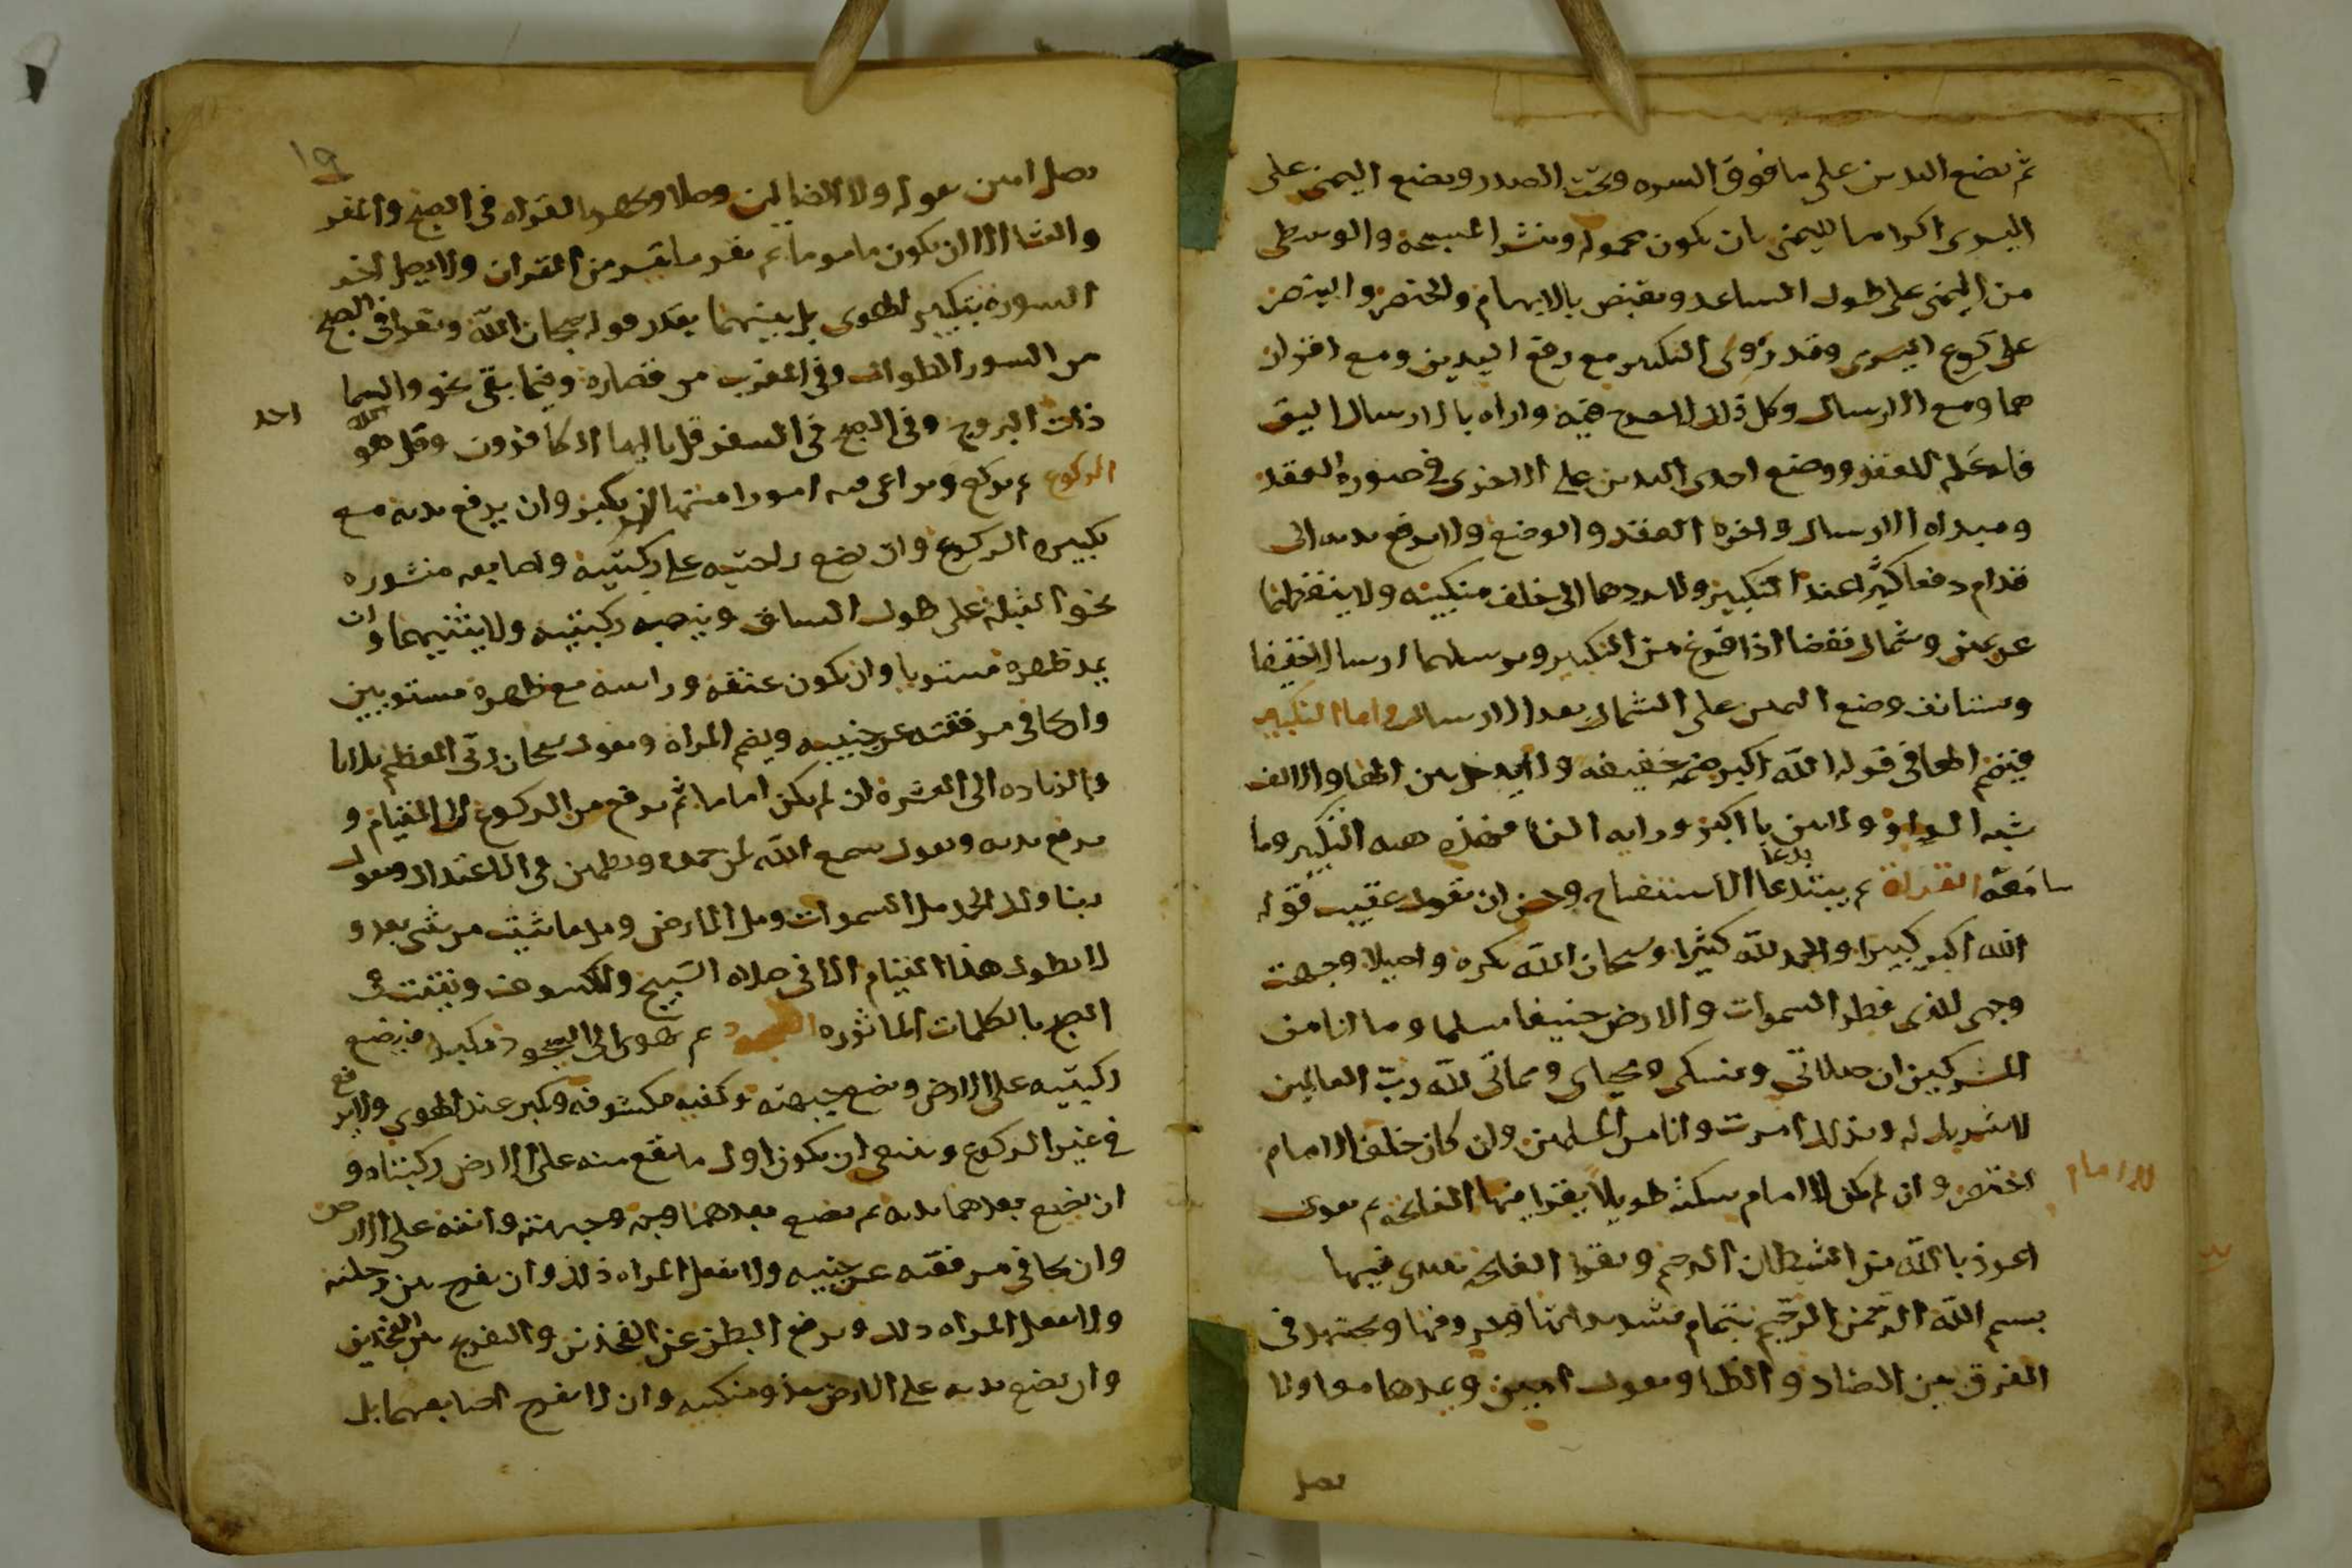 ثم يضع اليدين على ما فوق السره وتحت الصدر ويضع اليمنى على
اليسرى اكراما لليمنى بان يكون محموله وينشر المسبحة والوسطى
من اليمنى على طول الساعد ويقبض بالابهام والخنصر والبنصر
على كوع اليسرى وقد روى التكبير مع رفع اليدين ومع اقترار
هما ومع الارسال وكل ذلك لا حرج فيه واراه بالارسال اليق
فانه كلم للعقد ووضع احدى اليدين على الاخرى في صورة العقد
ومبداه الارسال واخره العقد والوضع ولا يرفع يديه الى
قدام دفعا كثيرا عند التكبير ولا يردهما الى خلف منكبيه ولا ينفضهما
عن يمين وشمال نفضا اذا فرغ من التكبير ويرسلهما ارسالا خفيفا
ويستانف وضع اليمين على الشمال بعد الارسال واما التكبير
فيضم الها في قوله الله اكبر ضمة خفيفه ولا يدخل بين الها والالف
شبه الواو ولا بين با اكبر ورايه الفا فهذه هيه التكبير وما
معه القراة ثم يبتدى بدعا الاستفتاح وحسن ان يقول عقيب قوله
الله اكبر كبيرا والحمد لله كثيرا وسبحان الله بكره واصيلا وجهت
وجهي للذي فطر السموات والارض حنيفا مسلما وما انا من
المشركين ان صلاتي ونسكي ومحياي ومماتي لله رب العالمين
لا شريك له وبذلك امرت وانا من المسلمين وان كان خلف الامام
اختصر وان لم يكن للامام سكتة طويلا يقرا فيها الفاتحه ثم يقول
للامام
اعوذ بالله من الشيطان الرجيم ويقرا الفاتحه يبتدى فيها
بسم الله الرحمن الرحيم بتمام تشديداتها وحروفها ويجتهد في
الفرق بين الضاد والظا ويقول امين ويمدها مدا ولا
يصل
١٩
يصل امين بقوله ولا الضالين وصلا ويجهر بالقراه في الصبح والمغر
والعشا الا ان يكون ماموما ثم يقر ما تيسر من القران ولا يصل اخر
السوره بتكبير الهوى بل بينهما بقدر قوله سبحان الله ويقرا في الصبح
من السور الطوال وفي المغرب من قصاره وفيما بقي نحو والسما
ذات البروج وفي الصبح في السفر قل يا ايها الكافرون وقل هو الله
احد
الركوع ثم يركع ويراعى فيه امورا منها ان يكبر وان يرفع يديه مع
تكبيره الركوع وان يضع راحتيه على ركبتيه واصابعه منشوره
نحو القبلة على طول الساق وينصب ركبتيه ولا يثنيهما وان
يمد ظهره مستويا وان يكون عنقه وراسه مع ظهره مستويين
وان يجافي مرفقيه عن جنبيه ويضم المراه ويقول سبحان ربي العظيم ثلاثا
والزياده الى العشرة ان لم يكن اماما ثم يرفع من الركوع الى القيام و
يرفع يديه ويقول سمع الله لمن حمده ويطمئن في الاعتدال ويقول
ربنا ولك الحمد مل السموات ومل الارض ومل ما شيت من شى بعد و
لا يطول هذا القيام الا في صلاه التسبيح والكسوف ويقنت في
الصبح بالكلمات الماثوره السجود ثم يهوى الى السجود مكبرا فيضع
ركبتيه على الارض ويضع جبهته وكفيه مكشوفه ويكبر عند الهوى ولا يرفع
في غير الركوع وينبغي ان يكون اول ما يقع منه على الارض ركبتاه و
ان يضع بعدهما يديه ثم يضع بعدهما وجهه وجبهته وانفه على الارض
وان يجافي مرفقيه عن جنبيه ولا تفعل المراه ذلك وان يفرج بين رجليه
ولا تفعل المراه ذلك ويرفع البطن عن الفخذين والتفريج بين الفخذين
وان يضع يديه على الارض حذو منكبيه وان لا يفرج اصابعهما بل